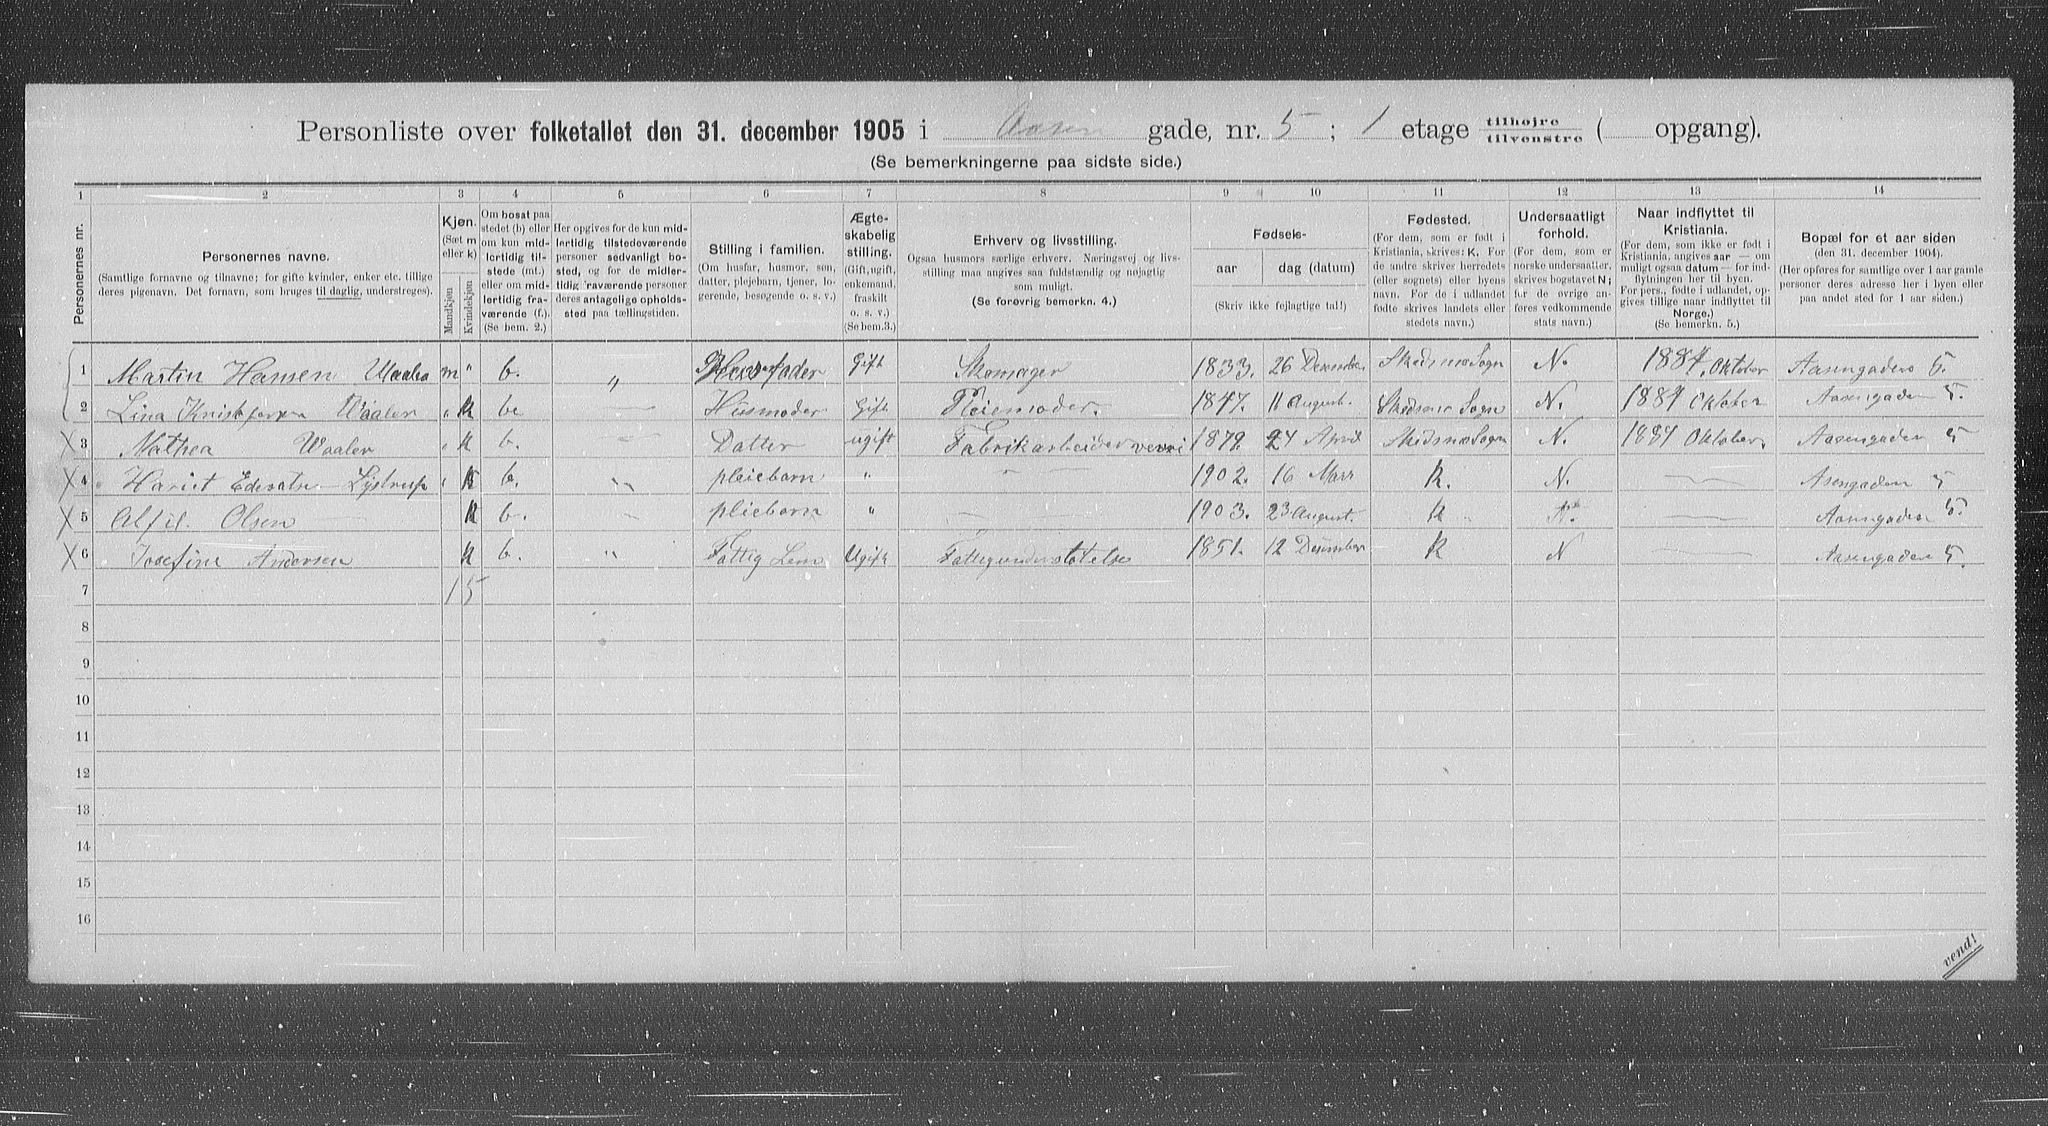 Personliste over folketallet den 31. december 1905 i Aasen gade, nr. 5 ; 1 etage tilhøjre tilvenstre ( opgang).
(Se bemerkningerne paa sidste side.)
1 2 3 4 5 6 7 8 9 10 11 12 13 14
Personernes nr.
Personernes navne.
(Samtlige fornavne og tilnavne; for gifte kvinder, enker etc. tillige deres pigenavn. Det fornavn, som bruges til daglig, understreges).
Kjøn.
(Sæt m eller k)
Mandkjøn
Kvindekjøn
Om bosat paa stedet (b) eller om kun midlertidig tilstede (mt.) eller om midlertidig fraværende (f.). (Se bem. 2.)
Her opgives for de kun midlertidig tilstedeværende personer sedvanligt bosted, og for de midlertidig fraværende personer deres antagelige opholdssted paa tællingstiden.
Stilling i familien.
(Om husfar, husmor, søn, datter, plejebarn, tjener, logerende, besøgende o. s. v.)
Ægteskabelig stilling.
(Gift, ugift, enkemand, fraskilt o. s. v.) (Se bem.3.)
Erhverv og livsstilling.
Ogsaa husmors særlige erhverv. Næringsvej og livsstilling maa angives saa fuldstændig og nøjagtig som muligt.
(Se forøvrig bemerkn. 4.)
Fødsels-
aar
dag (datum)
(Skriv ikke fejlagtige tal!)
Fødested.
(For dem, som er født i Kristiania, skrives: K. For de andre skrives herredets (eller sognets) eller byens navn. For de i udlandet fødte skrives landets eller stedets navn.)
Undersaatligt forhold.
(For dem, som er norske undersaatter, skrives bogstavet N; for de øvrige anføres vedkommende stats navn.)
Naar indflyttet til Kristiania.
(For dem, som ikke er født i Kristiania, angives aar — om muligt ogsaa datum — for indflytningen her til byen. For pers., fødte i udlandet, opgives tillige naar indflyttet til Norge.)
(Se bemerkn. 5.)
Bopæl for et aar siden
(den 31. december 1904).
(Her opføres for samtlige over 1 aar gamle personer deres adresse her i byen eller paa andet sted for 1 aar siden.)
1 Martin Hansen Waaler m " b. " Husfader Gift Skomager 1833. 26 Desember Skedsmo Sogn N. 1884. Oktober Aasengaden 5.
2 Lina Kristofersen Waaler " k b. — Husmoder Gift Pleiemoder. 1847. 11 August. Skedsmo Sogn N. 1884 Oktober Aasengaden 5.
3 Mathea Waaler " k b. — Datter ugift 1879 24 April Skedsmo Sogn N. 1884 Oktober, Aasengaden 5
4 Hariet Lystrup " k b. " pleiebarn " " — 1902. 16 Mars K. N. — Asengaden 5
5 Alfil. Olsen k b. — pliebarn " — 1903. 23 August. K N. — Aasengaden 5.
6 Josefine Andersen k b. " Fattig Lem Ugift Fattigunderstøtelse 1851. 12 Desember K N — Aasengaden 5.
7 1 5
8
9
10
11
12
13
14
15
16
vend!